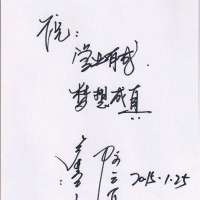 祝：
学业有成
梦想成真
2015.1.25